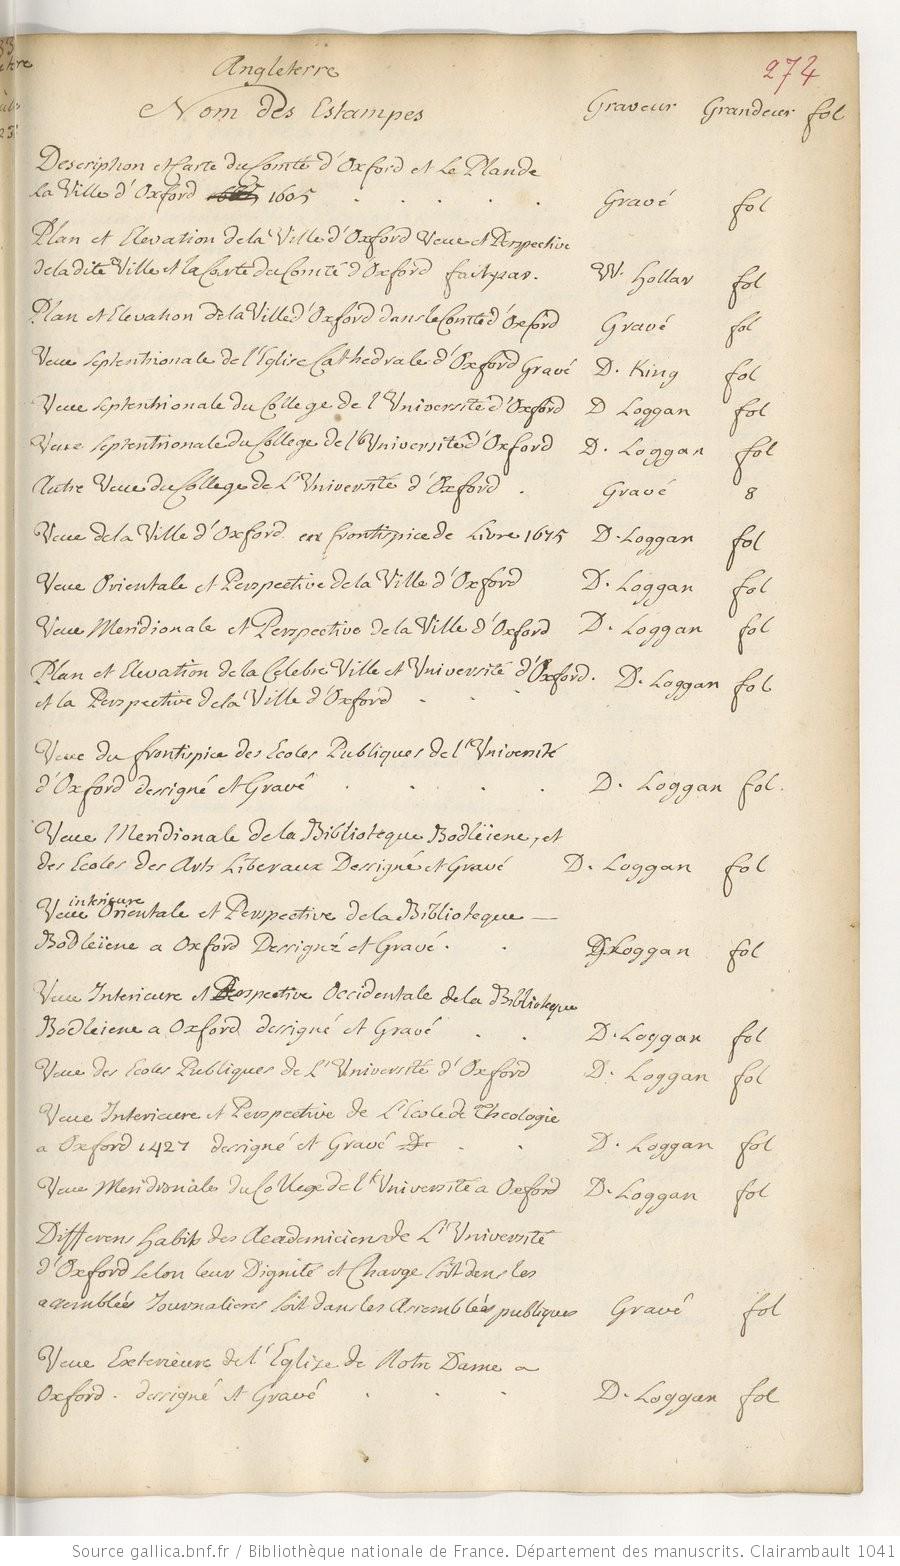 274
Angleterre
Nom des Estampes Graveur Grandeur fol
Description et Carte du Comté d'Oxford et Le Plan de
la Ville d'Oxford 1605 . . . . . Gravé fol
Plan et Elevation de la Ville d'Oxford Veue et Perspective
de la dite Ville et la Carte du Comté d'Oxford fait par. W. Hollar fol
Plan et Elevation de la Ville d'Oxford dans le Comté d'Oxford Gravé fol
Veue Septentrionale de l'Eglise Cathedrale d'Oxford Gravé D. King fol
Veue Septentrionale du College de l'Université d'Oxford D Loggan fol
Veue Septentrionale du College de l'Université d'Oxford D. Loggan fol
Autre Veue du College de L'Université d'Oxford . Gravé 8
Veue de la Ville d'Oxford en frontispice de Livre 1675 D. Loggan fol
Veue Orientale et Perspective de la Ville d'Oxford D. Loggan fol
Veue Meridionale et Perspective de la Ville d'Oxford D. Loggan fol
Plan et Elevation de la Celebre Ville et Université d'Oxford. D. Loggan fol
et la Perspective de la Ville d'Oxford . . .
Veue du frontispice des Ecoles Publiques de l'Université
d'Oxford dessigné et Gravé . . . . D. Loggan fol.
Veue Meridionale de la Biblioteque Bodleïene, et
des Ecoles des Arts Liberaux Dessigné et Gravé D. Loggan fol
Veue interieure Orientale et Perspective de la Biblioteque —
Bodleïene a Oxford Dessigné et Gravé . . D. Loggan fol
Veue Interieure et Perspective Occidentale de la Biblioteque
Bodleiene a Oxford dessigné et Gravé . . D. Loggan fol
Veue des Ecoles Publiques de L'Université d'Oxford D. Loggan fol
Veue Interieure et Perspective de L'Ecole de Theologie
a Oxford 1427 dessigné et Gravé . . D. Loggan fol
Veue Meridionale du College de l'Université a Oxford D. Loggan fol
Differens habits des Academiciens de L'Université
d'Oxford selon leur Dignité et Charge soit dans les
assemblées Journalieres soit dans les Assemblées publiques Gravé fol
Veue Exterieure de l'Eglise de Notre Dame a
Oxford . dessigné et Gravé . . . D. Loggan fol
Source gallica.bnf.fr / Bibliothèque nationale de France. Département des manuscrits. Clairambault 1041